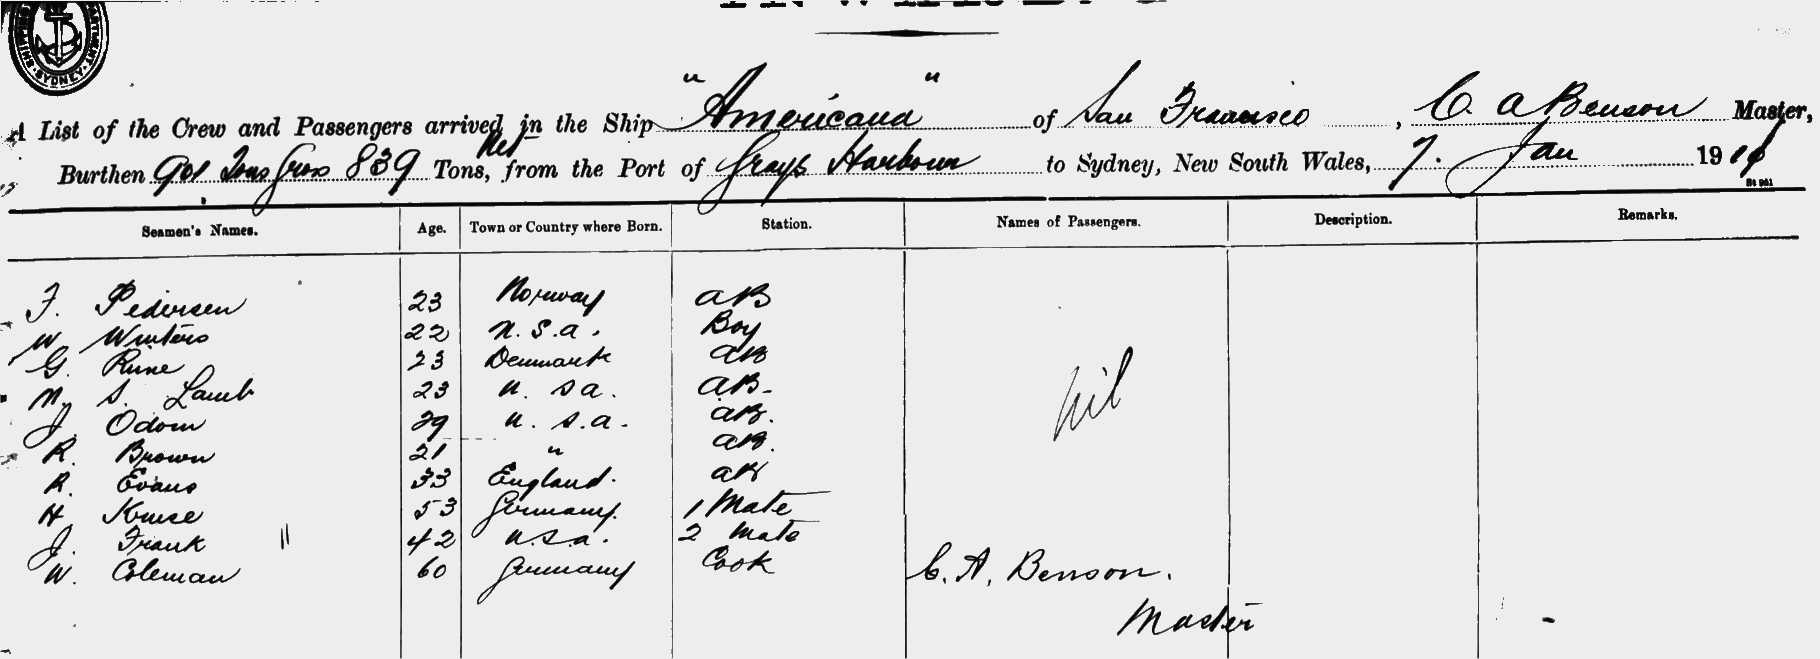 SYDNEY
"Americana"
A List of the Crew and Passengers arrived in the Ship of San Francisco, C. A Benson Master,
Burthen 901 Tons Gross 839 Tons, Net from the Port of Grays Harbour to Sydney, New South Wales, 7. Jan 191
St 961
Seamen's Names. Age. Town or Country where Born. Station. Names of Passengers. Description. Remarks.
F. Pedersen 23 Norway AB
W Winters 22 U.S.A. Boy
G. Rine 23 Denmark AB
N. S. Lamb 23 U. S A. AB-
J. Odom 29 U. S.A. AB.
R. Brown 21 " AB.
R. Evans 33 England. AB
nil
H Kruse 53 Germany. 1 Mate
J. Frank 42 U.S.A. 2 Mate
W. Coleman 60 Germany Cook
C. A. Benson.
Master